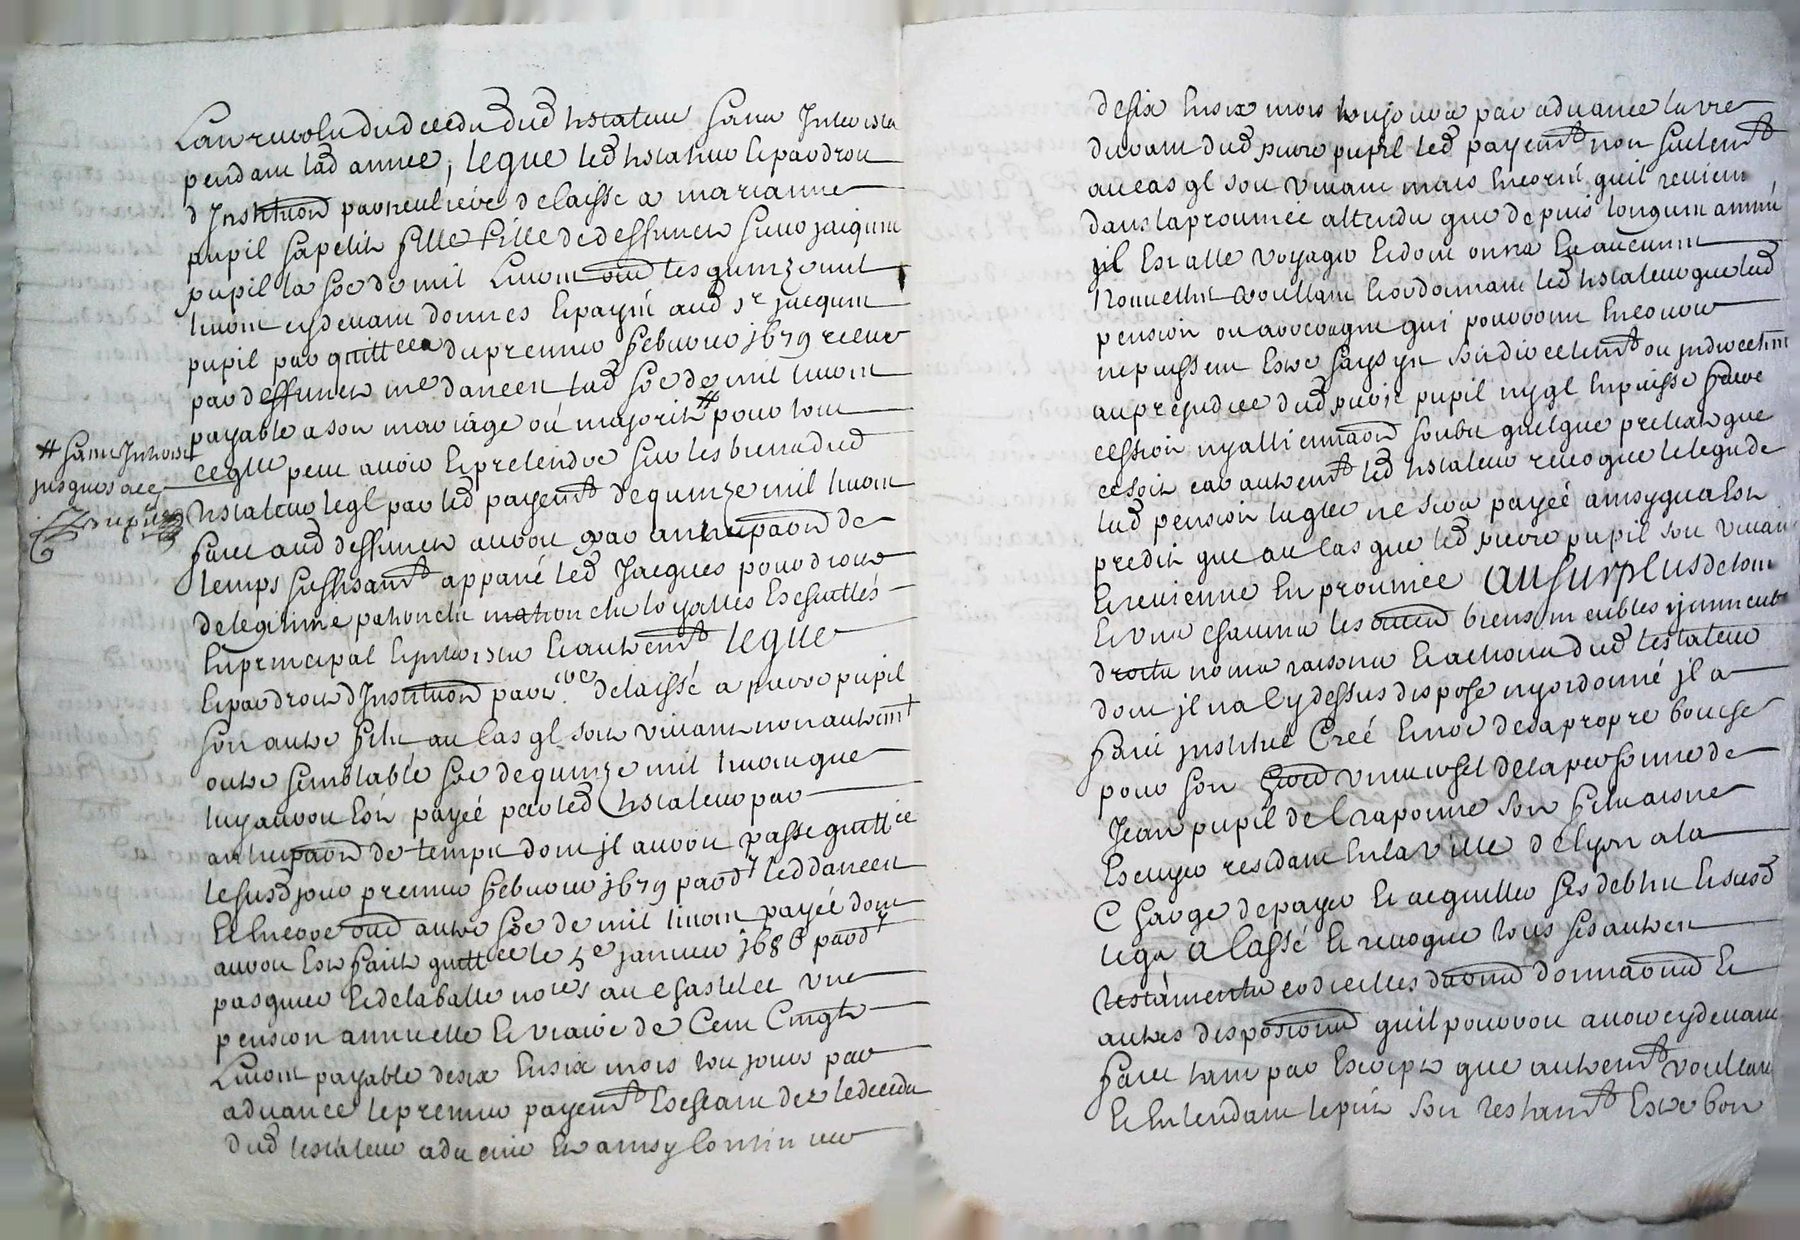 Lan revolu du deceds dud testateur sans Interestz
pendant lad annee, legue led testateur et par droit
d'Institution particuliere delaisse a marianne
pupil sa petite fille fille de deffunct sieur jacques
pupil la soe de mil livres oultre les quinze mil
livres cydevant donnes et payné aud sr jacques
pupil par quittcea du premier febvrier 1679 receue
par deffunct me dancen lad soe de mil livres
payable a son mariage ou majorité # pour tout
ce qlle peut avoir et pretendre sur les biens dud
testateur leql par led payemt de quinze mil livres
faict aud deffunct auroit par anticipaon de
temps suffisamt appané led Jacques pour droit
de legitime
en principal Interestz et autremt legue
et par droit d'Institution particre delaissé a pierre pupil
son autre fils au cas ql soit vivant non autremt
outre semblable soe de quinze mil livres que
luy auroit esté payée par led testateur par
anticipaon de temps dont il auroit passe quittce
le susd jour premier febvrier 1679 pard led dancen
et encore oud autre soe de mil livres payée dont
auroit este faict quittce le 5e janvier 1686 pard
pasquier et delaballe nores au chastelet une
pension annuelle et viaire de Cent Cinqte
Livres payable de six en six mois toujours par
advance le premier payemt escheant dez le deceds
dud testateur advenu et ainsy continuer
# sans Interest
jusques a ce
pupil
de six en six mois toujours par advance la vie
durant dud pierre pupil led payemt non seulemt
au cas ql soit vivant mais encores quil revient
dans la province attendu que depuis longues années
jl est alle voyager et dont on na eu aucunes
nouvelles voullant et ordonnant led testateur que lad
pension ou arrerages qui pourront encourir
ne puissent estre saisys soit directemt ou indirectemt
au prejudice dud pierre pupil ny ql en puisse faire
cession ny alliennaon soubz quelque pretexte que
ce soit car autremt led testateur revoque le legs de
lad pension laqlle ne sera payée ainsy qua este
predit que au cas que led pierre pupil soit vivant
et revienne en province au surplus de tous
et uns chacuns les autres biens meubles immeubles
droits noms raisons et actions dud testateur
dont jl na cy dessus disposé ny ordonné jl a
faict institué Créé et nomé de sa propre bouche
pour son heritier universel de la personne de
Jean pupil de Craponne son fils aisne
Escuyer residant en la ville de Lyon a la
Charge de payer et acquitter ses debtes et susd
legs a Cassé et revoque tous ses autres
testaments codicilles donaons et
autres disposions quil pourroit avoir cydevant
faict tant par escript que autremt voullant
et entendant le pnt son testamt estre bon